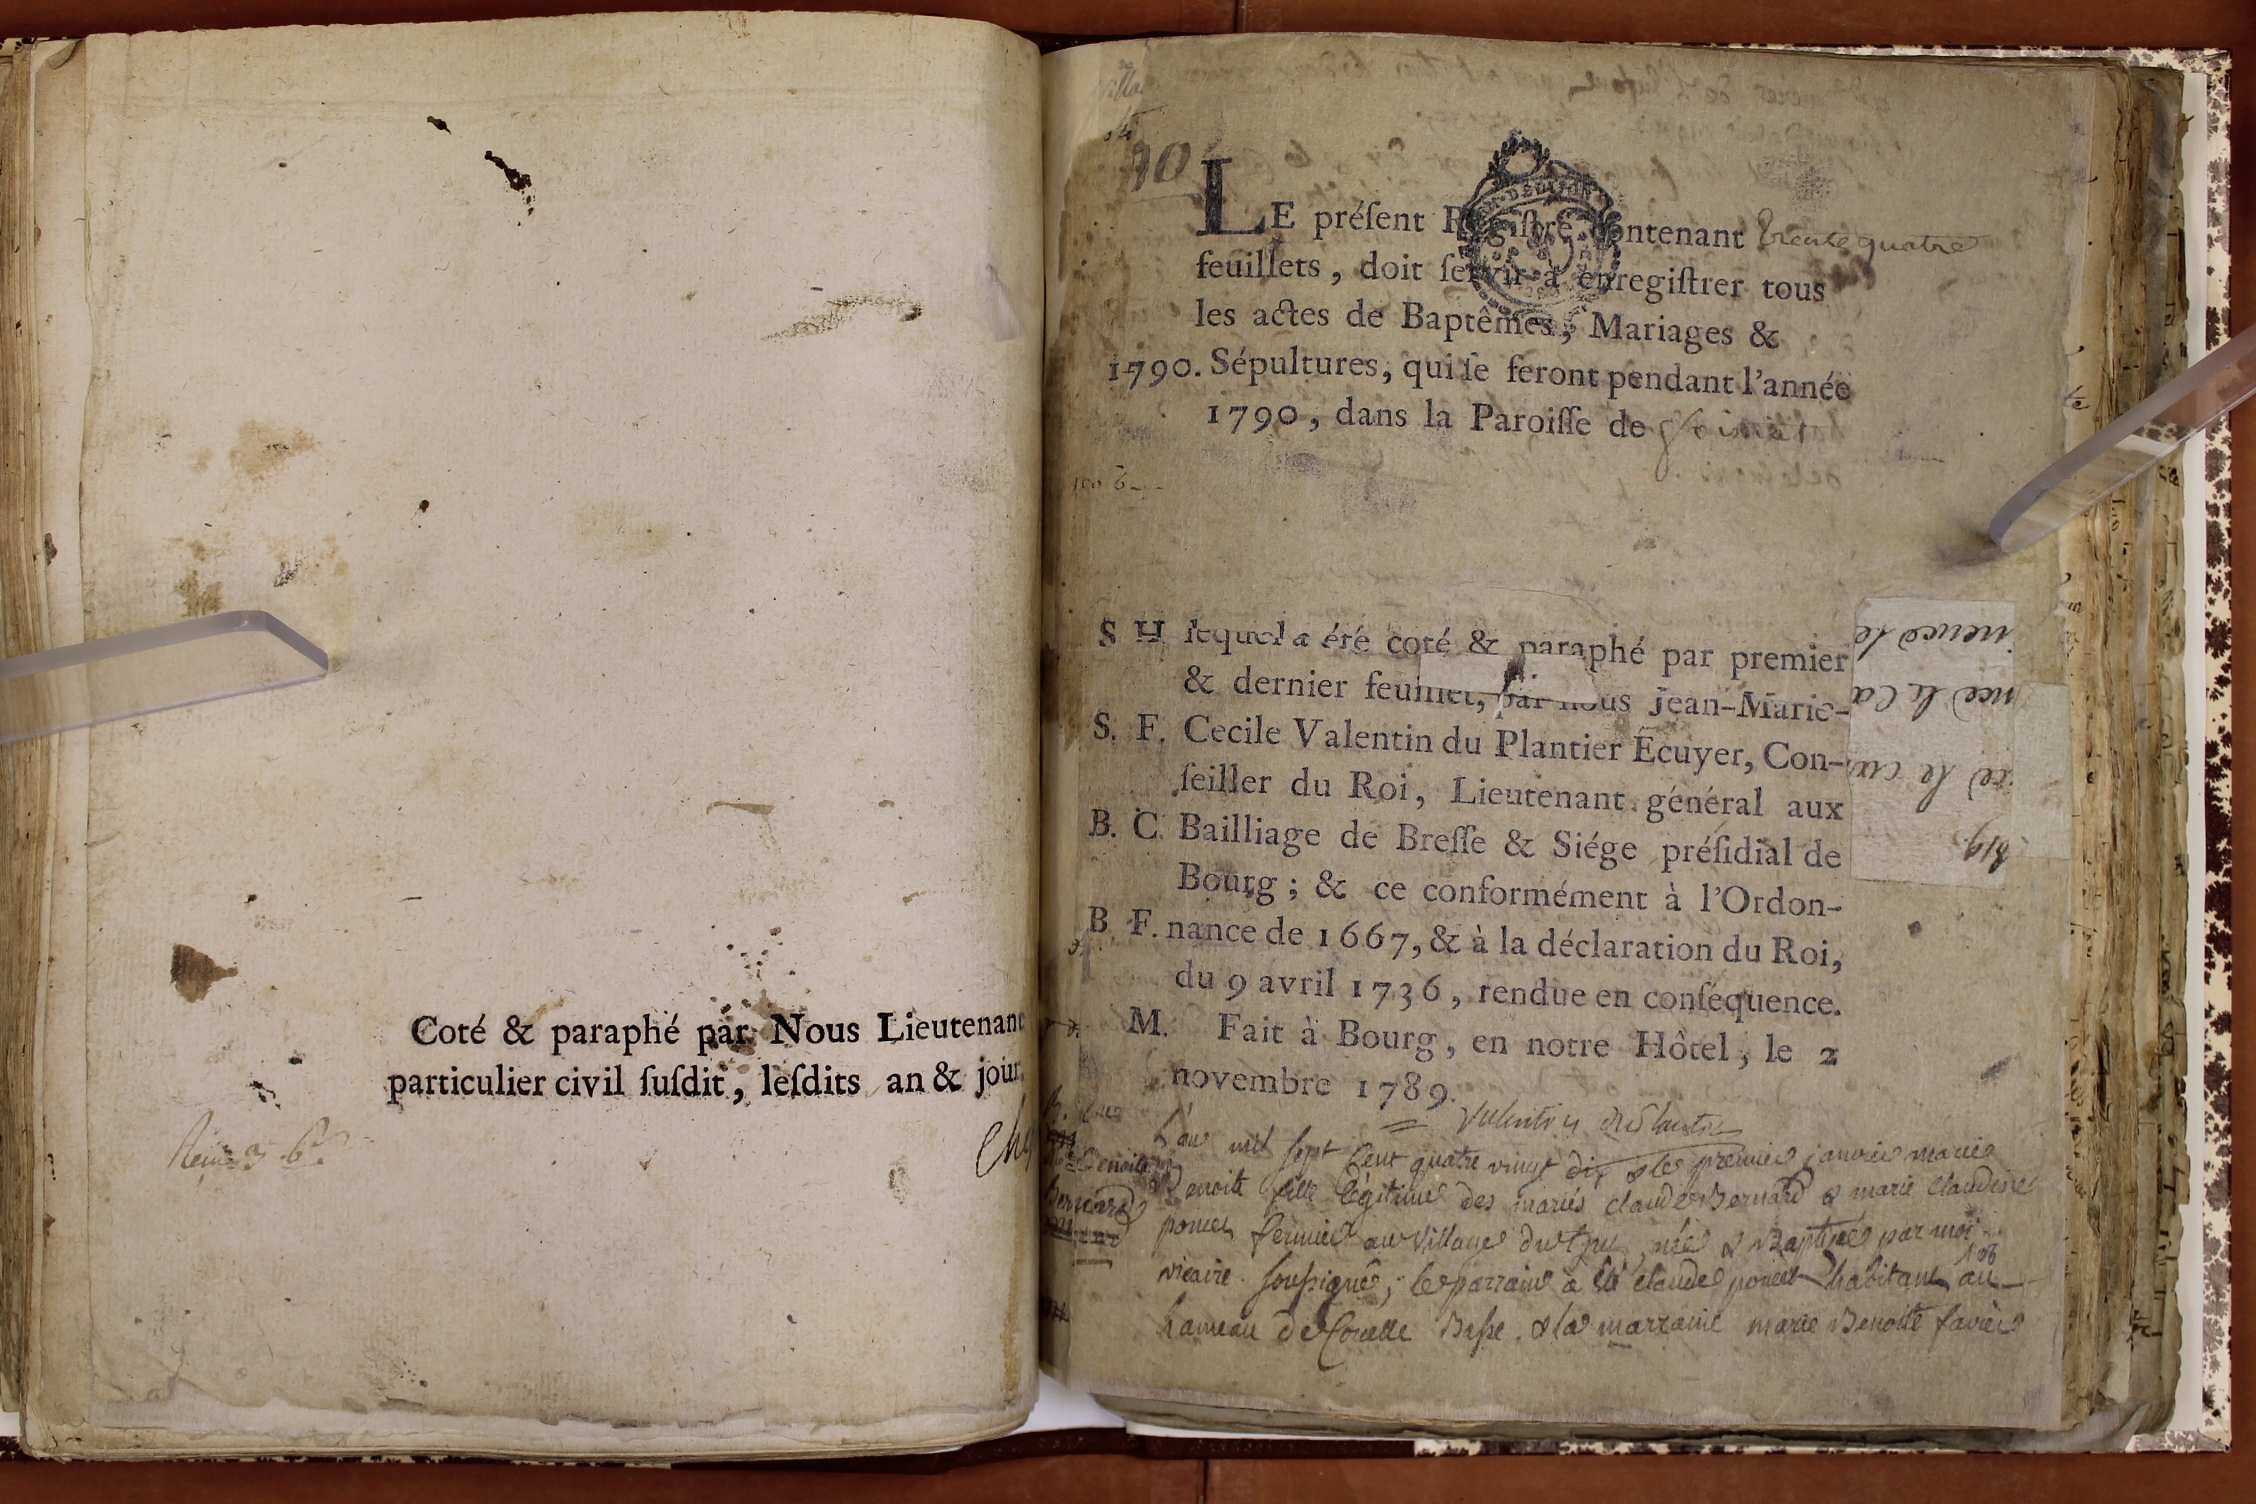 Coté & paraphé par Nous Lieutenant
particulier civil ſuſdit, leſdits an & jour.
90
LE préſent Regiſtre contenant trente quatre
feuillets, doit ſervir à enregiſtrer tous
les actes de Baptêmes, Mariages &
1790. Sépultures, qui ſe feront pendant l'année
1790, dans la Paroiſſe de
S H lequel a été coté & paraphé par premier
& dernier feuillet, par nous Jean-Marie-
S. F. Cecile Valentin du Plantier Ecuyer, Con-
ſeiller du Roi, Lieutenant général aux
B. C. Bailliage de Breſſe & Siége préſidial de
Bourg ; & ce conformément à l'Ordon-
B F. nance de 1667, & à la déclaration du Roi,
du 9 avril 1736, rendue en conſéquence.
M. Fait à Bourg, en notre Hôtel, le 2
novembre 1789.
Valentin duPlantier
L'an mil sept cent quatre vingt dix & le premier janvier marie
Benoite fille légitime des mariés claude Bernard & marie claudine
poncet fermier au village du , née & Baptisée par moi
vicaire soussigné ; le parrain a été claude poncet habitant au
hameau de Basse & la marraine marie Benoite favier
Benoite
Bernard